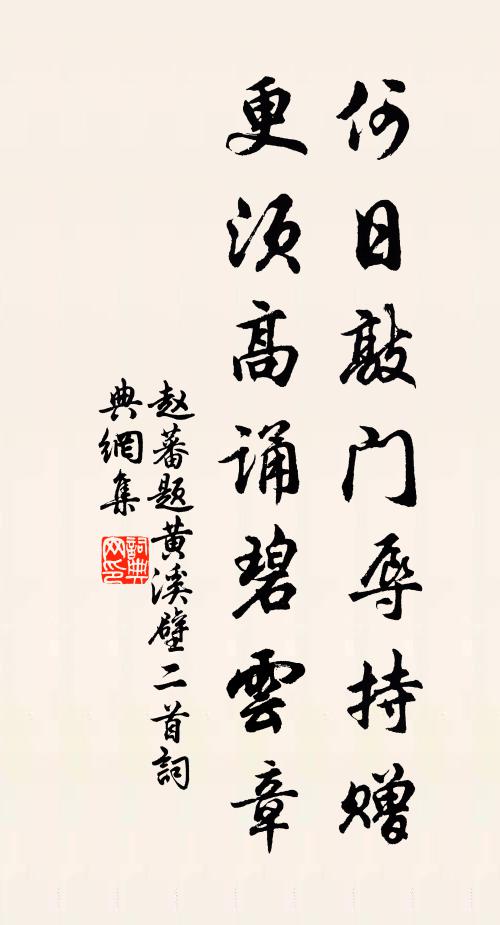 何日敲门辱持赠
更须高诵碧雲章
赵蕃题黄溪壁二首詞
典網集
詞典网印